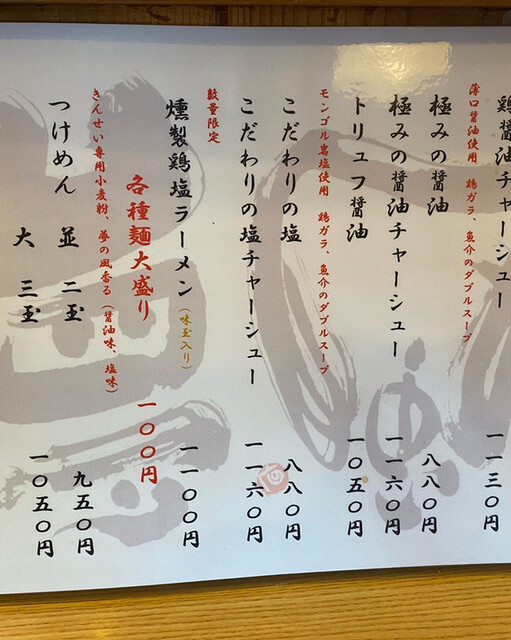 鶏醤油チャーシュー 一一三〇円
薄口醤油使用 鶏ガラ、魚介のダブルスープ
極みの醤油 八八〇円
極みの醤油チャーシュー 一一六〇円
トリュフ醤油 一〇五〇円
モンゴル岩塩使用 鶏ガラ、魚介のダブルスープ
こだわりの塩 八八〇円
こだわりの塩チャーシュー 一一六〇円
数量限定
燻製鶏塩ラーメン(味玉入り) 一一〇〇円
各種麺大盛り 一〇〇円
きんせい専用小麦粉、夢の風香る(醤油味、塩味)
つけめん 並 二玉 九五〇円
大 三玉 一〇五〇円